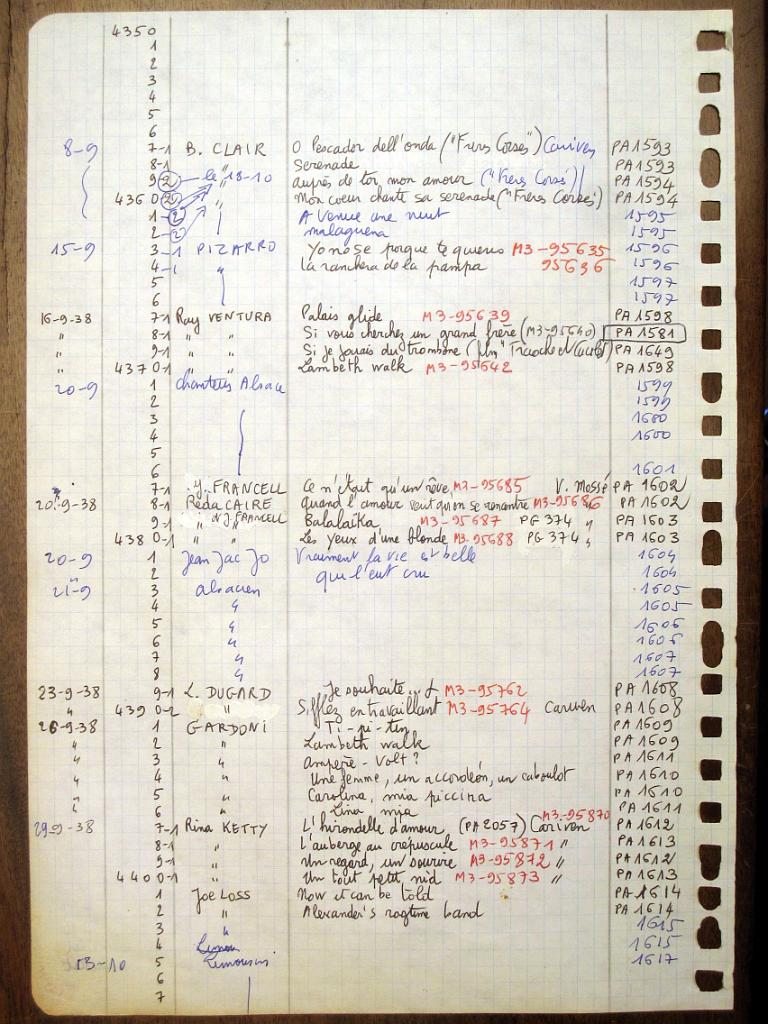 4350
1
2
3
4
5
6
8-9 7-1 B. CLAIR O Pescador dell'onda ("Frères Corses") Cariven PA 1593
8-1 " Serenade PA 1593
9 2 le 18-10 " auprès de toi mon amour ("Frères Corses") PA 1594
4360 2 " Mon coeur chante sa serenade ("Frères Corses") PA 1594
1-2 " A Venise une nuit 1595
2-2 malaguena 1595
15-9 3-1 PIZARRO Yo no se porque te quiero M3-95635 1596
4-1 " la ranchera de la pampa 95636 1596
5 1597
6 1597
16-9-38 7-1 Ray VENTURA Palais glide M3-95639 PA 1598
" 8-1 " " Si vous cherchez un grand frère (M3-95640) PA 1581
" 9-1 " " Si je jouais du trombone (film "Tricoche et Cacolet") PA 1649
" 4370-1 " " Lambeth walk M3-95642 PA 1598
20-9 1 chanteurs Alsace 1599
2 1599
3 1600
4 1600
5
6 1601
7-1 J. FRANCELL Ce n'était qu'un rêve M3-95685 V. Mossé PA 1602
20-9-38 8-1 Réda CAIRE Quand l'amour veut qu'on se rencontre M3-95686 " PA 1602
9-1 " et J. FRANCELL Balalaïka M3-95687 PG 374 " PA 1603
4380-1 " " Les yeux d'une blonde M3-95688 PG 374 " PA 1603
20-9 1 Jean Jac Jo Vraiment la vie est belle 1604
" 2 qui l'eut cru 1604
21-9 3 alsacien 1605
4 " 1605
5 " 1606
6 " 1606
7 " 1607
8 " 1607
23-9-38 9-1 L. DUGARD Je souhaite... M3-95762 PA 1608
" 4390-2 " Sifflez en travaillant M3-95764 Cariven PA 1608
26-9-38 1 GARDONI Ti-pi-tin PA 1609
" 2 " Lambeth walk PA 1609
" 3 " Ampère-Volt? PA 1611
" 4 " Une femme, un accordéon, un caboulot PA 1610
" 5 " Carolina, mia piccina PA 1610
" 6 " Lina mia PA 1611
29-9-38 7-1 Rina KETTY L'hirondelle d'amour (PA 2057) Cariven M3-95870 PA 1612
8-1 " L'auberge au crépuscule M3-95871 " PA 1613
9-1 " Un regard, un sourire M3-95872 " PA 1612
4400-1 " Un tout petit nid M3-95873 " PA 1613
1 Joe LOSS Now it can be told PA 1614
2 " Alexander's ragtime band PA 1614
3 " 1615
4 1615
13-10 5 Limousin 1617
6
7